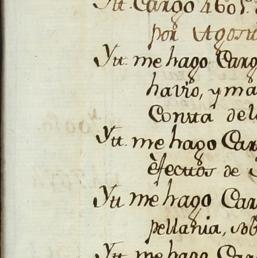 Ytt. Cargo 460 r.
por Agosto
Ytt. me hago Carg
havio, y ma
Consta del
Ytt. me hago Car
efectos de
Ytt. me hago Car
pellania, sob
Ytt. me hago Car